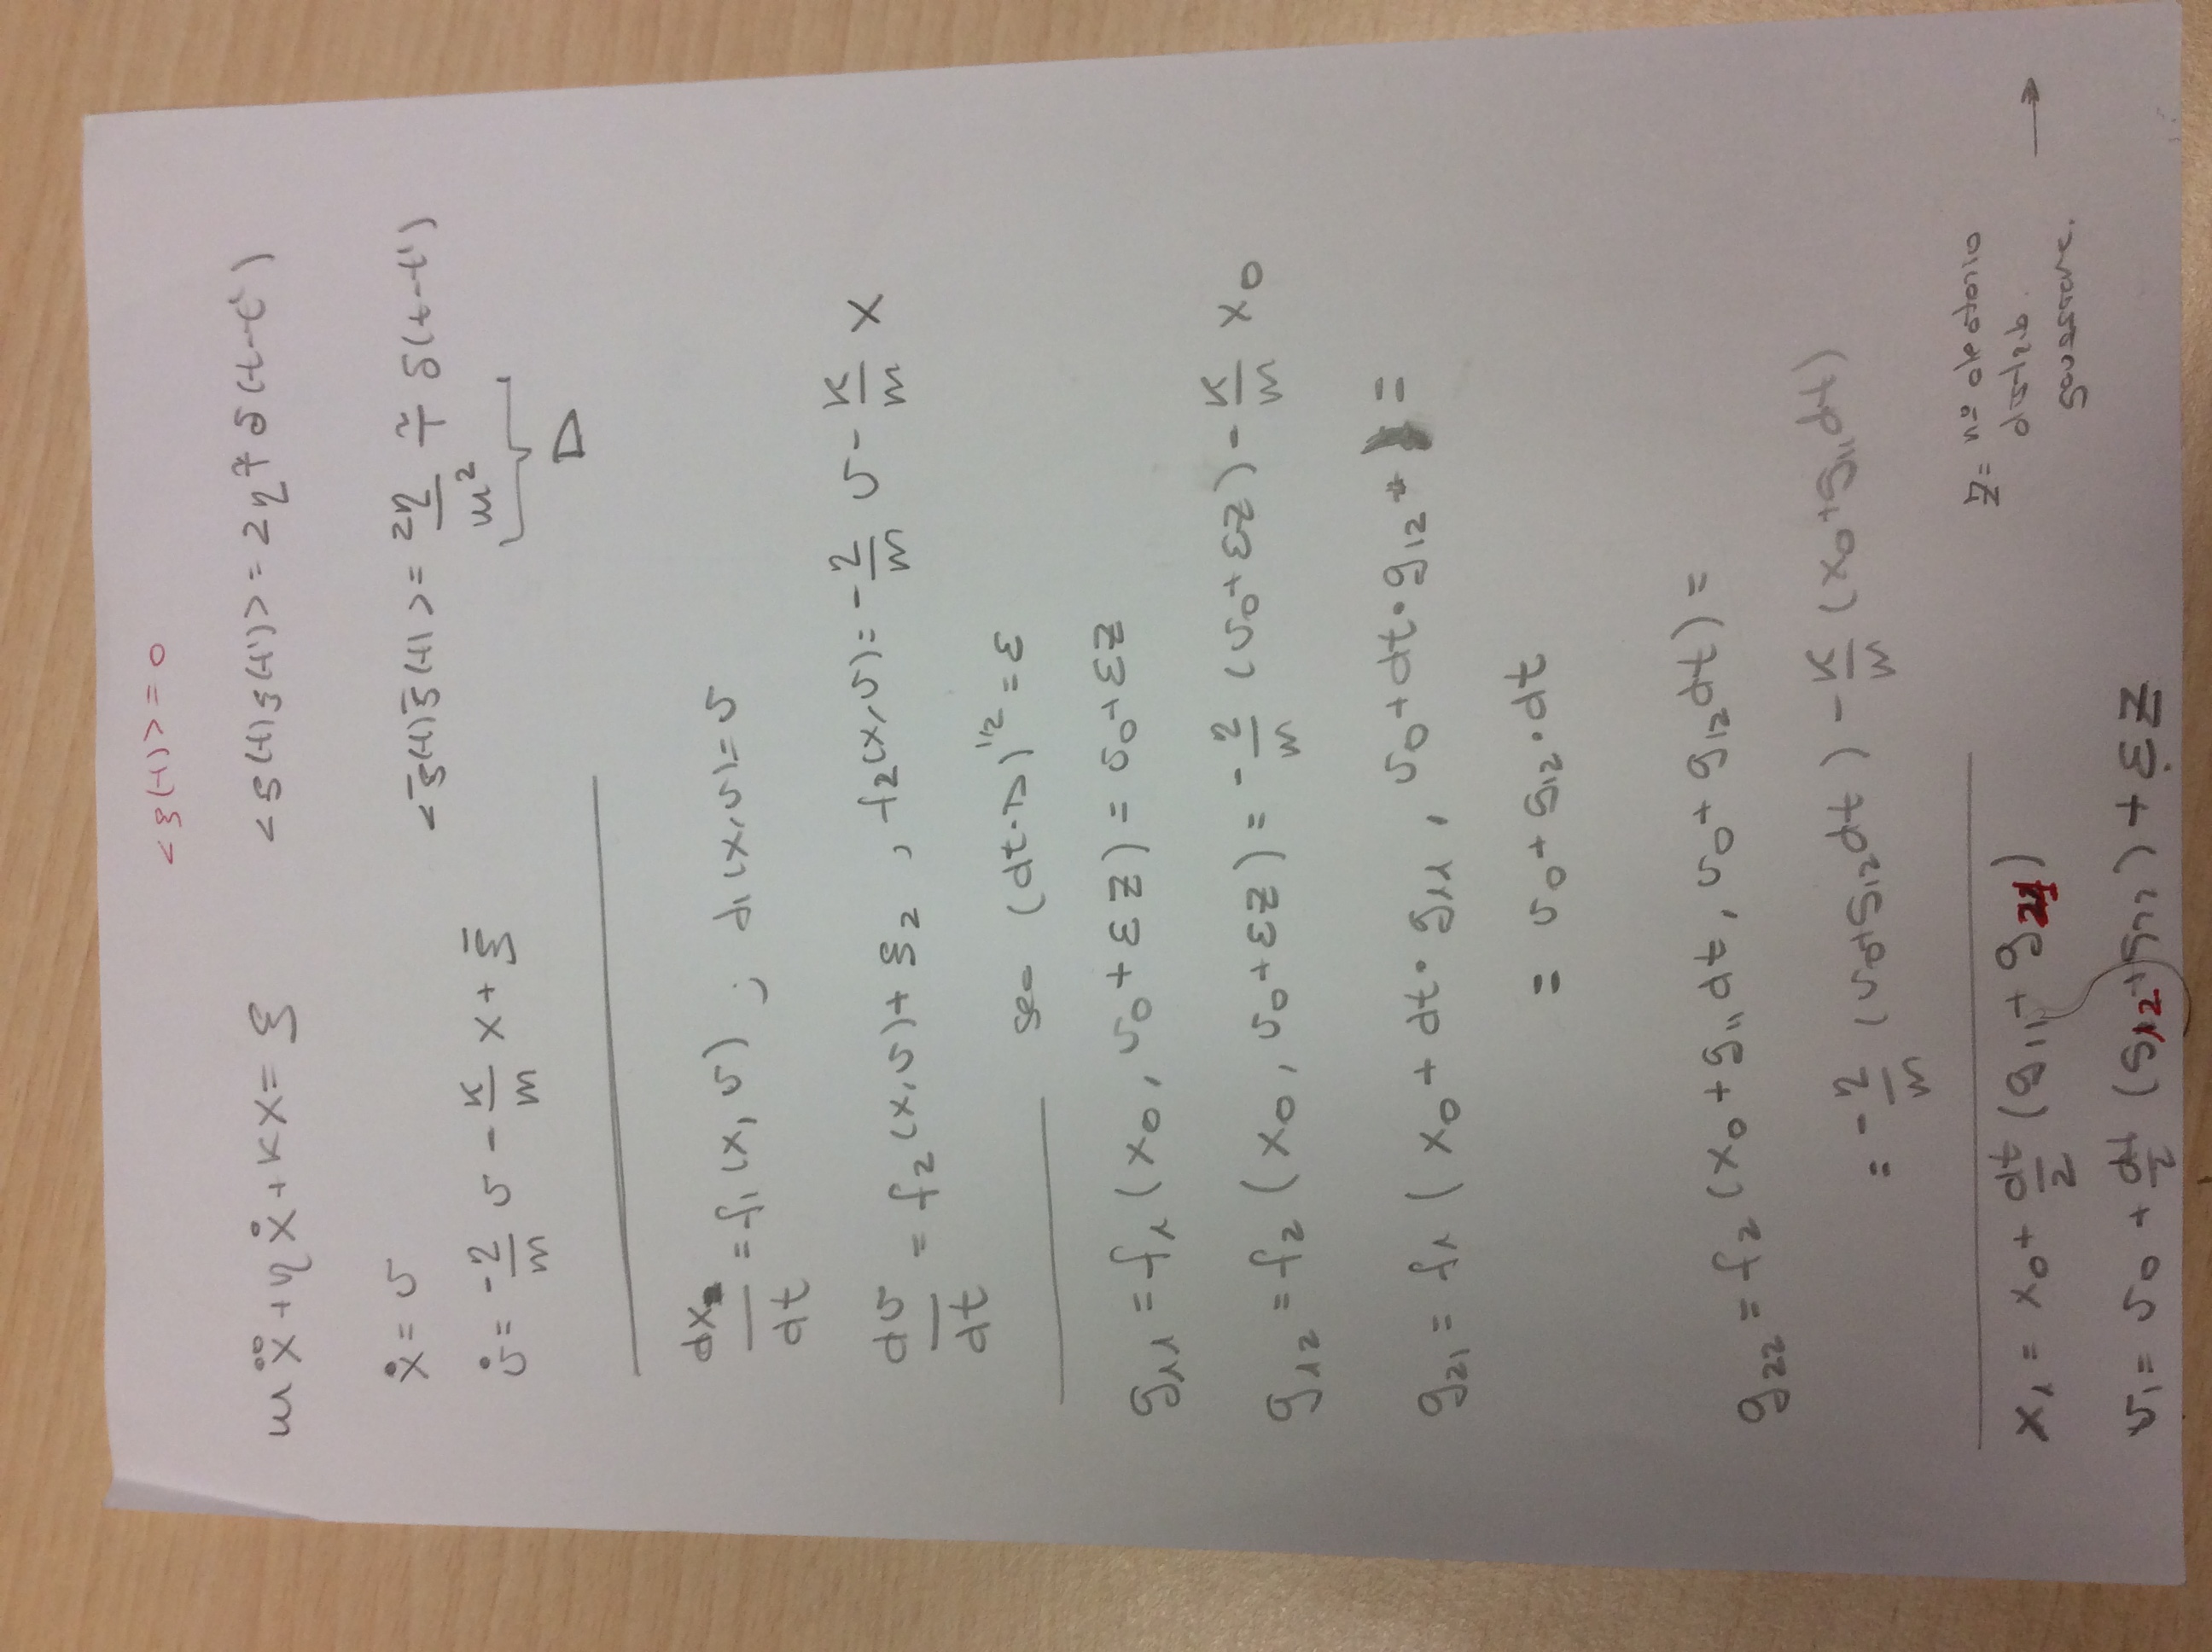 <ξ(t)> = 0
mẍ + ηẋ + κx = ξ
<ξ(t)ξ(t')> = 2ηT̃ δ(t-t')
ẋ = v
<ξ̄(t)ξ̄(t)> = 2η/m² T̃ δ(t-t')
v̇ = -η/m v - κ/m x + ξ̄
D
dx/dt = f₁(x, v) ; f₁(x,v) = v
dv/dt = f₂(x,v) + ξ₂ , f₂(x,v) = -η/m v - κ/m x
sea (dt·D)^1/2 = ε
g₁₁ = f₁(x₀, v₀+εz) = v₀+εz
g₁₂ = f₂(x₀, v₀+εz) = -η/m (v₀+εz) - κ/m x₀
g₂₁ = f₁(x₀ + dt·g₁₁, v₀+dt·g₁₂) =
= v₀ + g₁₂·dt
g₂₂ = f₂(x₀ + g₁₁dt, v₀ + g₁₂dt) =
= -η/m (v₀+g₁₂dt) - κ/m (x₀+g₁₁dt)
x₁ = x₀ + dt/2 (g₁₁ + g₂₁)
v₁ = v₀ + dt/2 (g₁₂+g₂₂) + εz
z = nº aleatorio
distrib.
gaussiana.
→